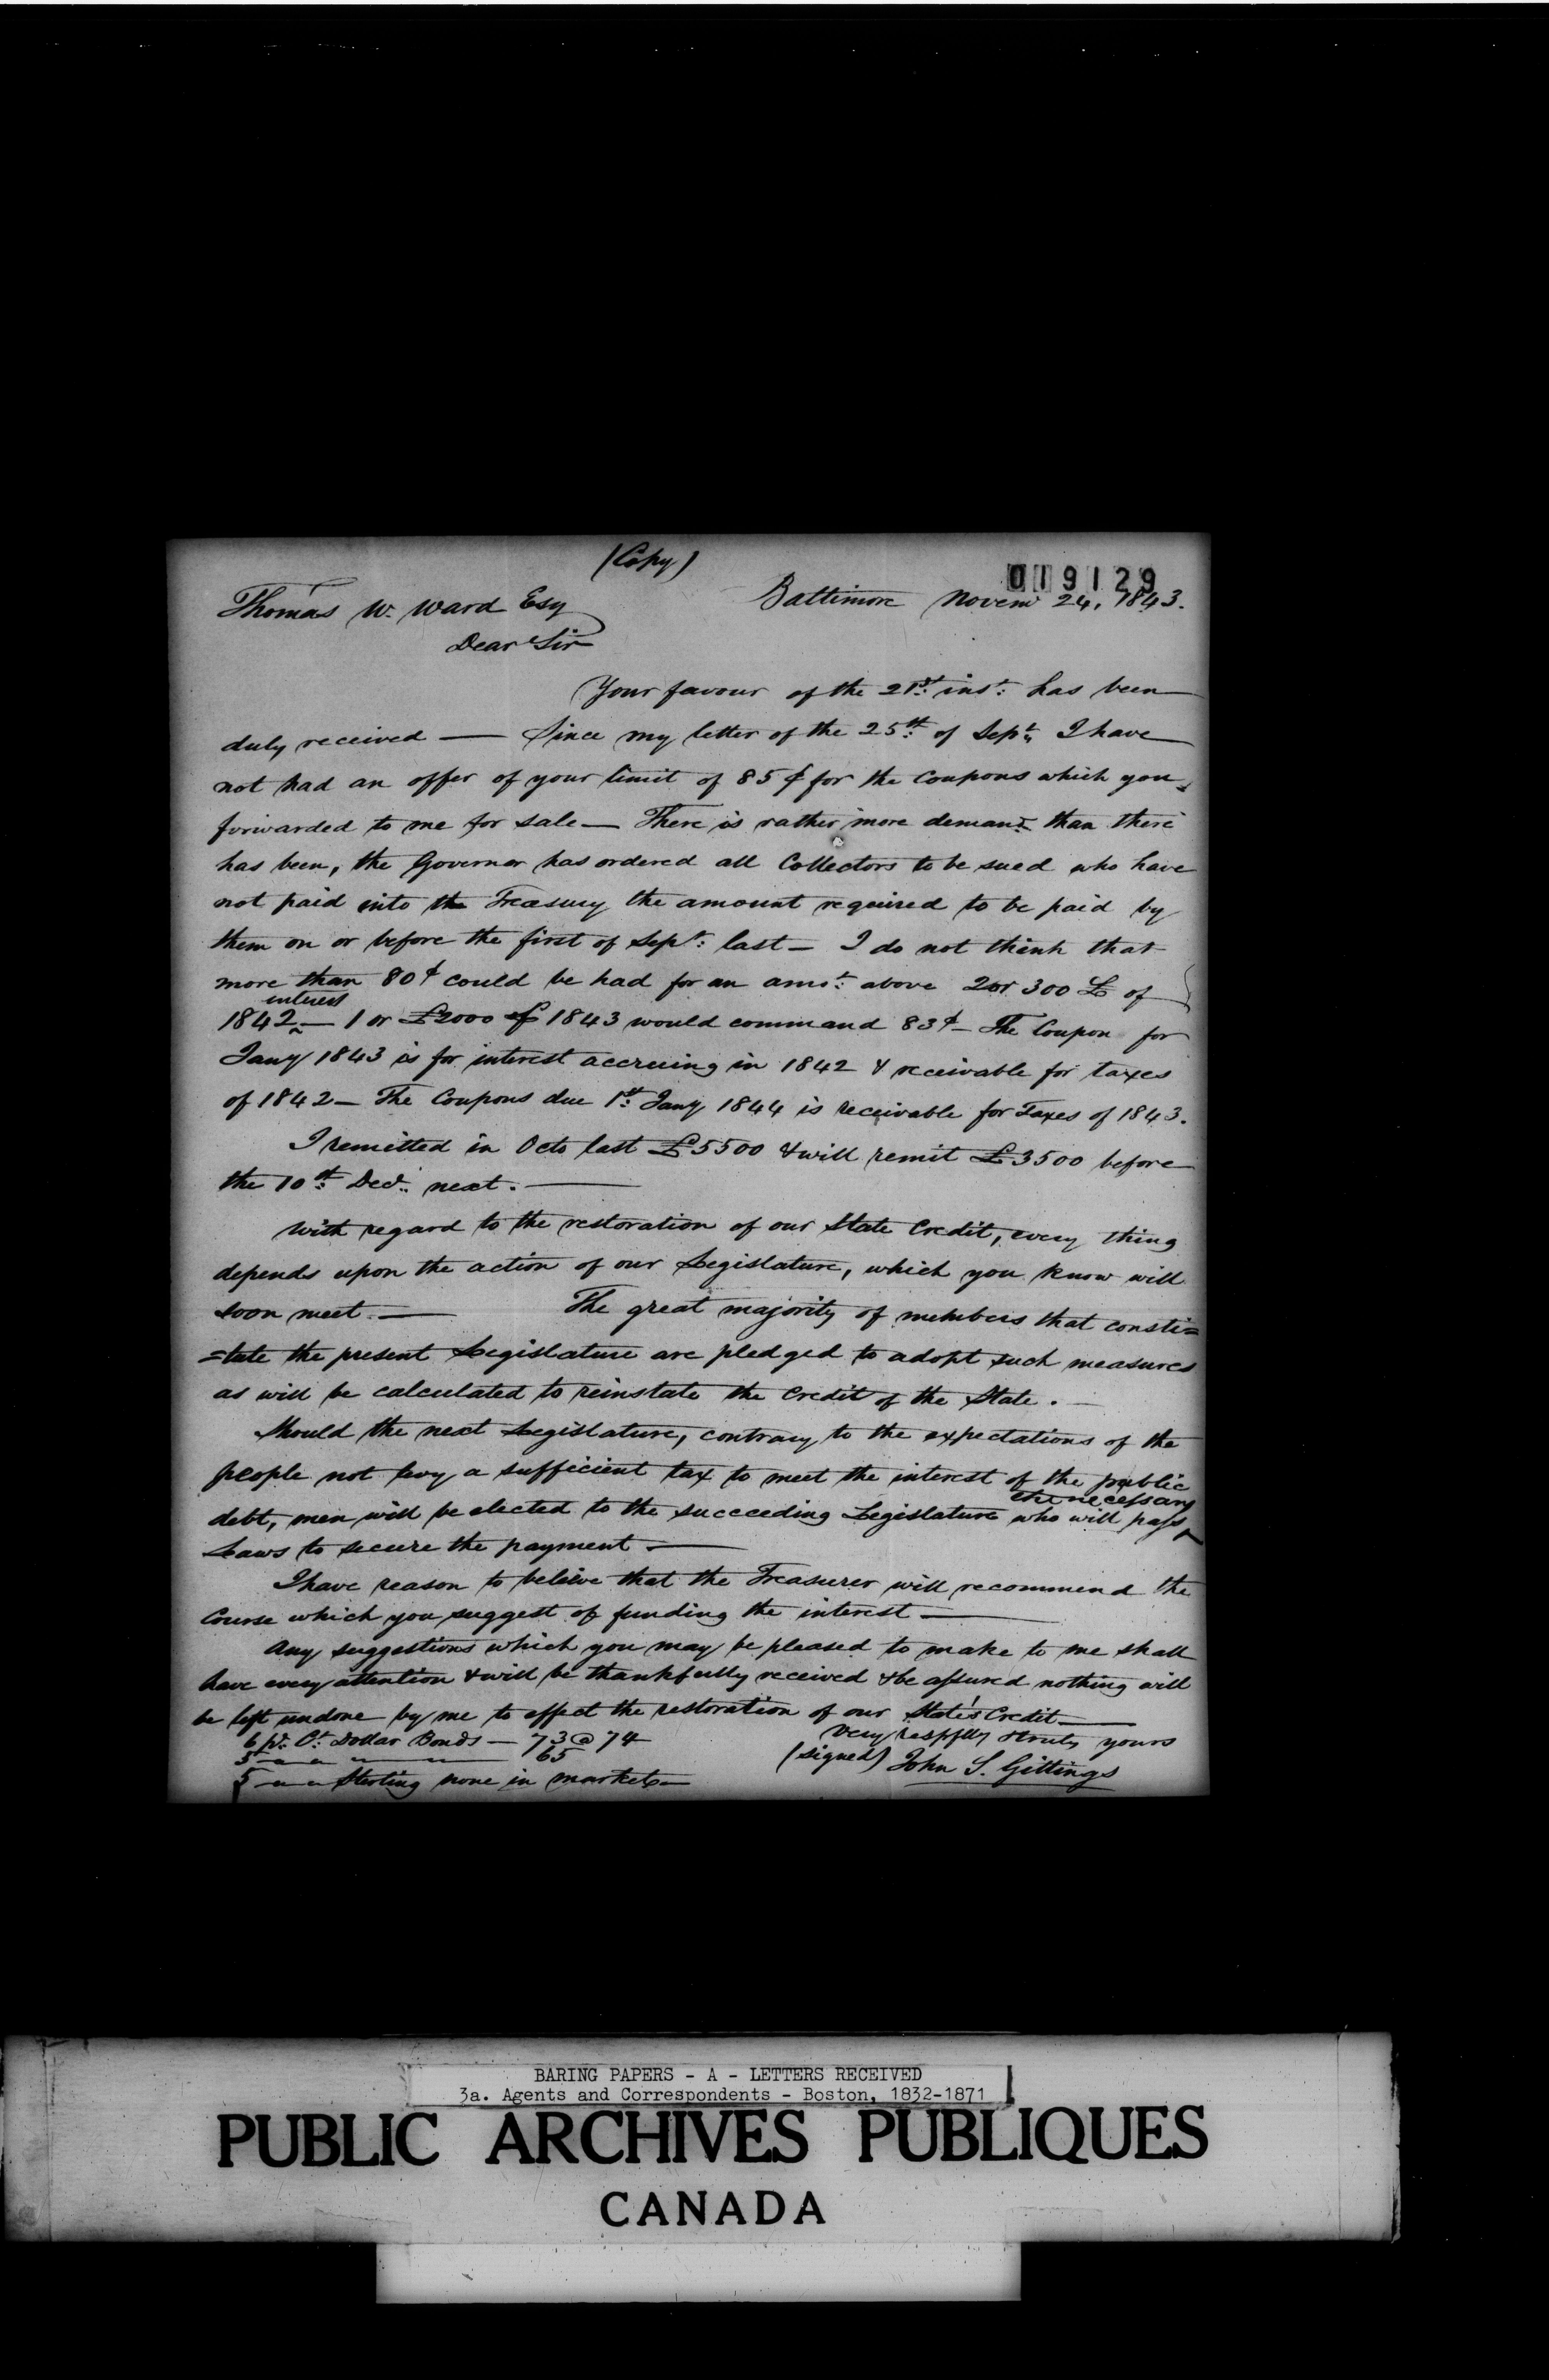 (Copy)
019129
Baltimore Novem 24, 1843.
Thomas W. Ward Esq
Dear Sir
Your favour of the 21st. inst: has been
duly received — Since my letter of the 25th. of Sept. I have
not had an offer of your limit of 85 ¢ for the Coupons which you
forwarded to me for sale — There is rather more demand than there
has been, the Governor has ordered all Collectors to be sued who have
not paid into the Treasury the amount required to be paid by
them on or before the first of Sept: last — I do not think that
more than 80¢ could be had for an amot: above 2 or 300 £ of
interest
1842 — 1 or £2000 of 1843 would command 83¢ — The Coupon for
Jany 1843 is for interest accruing in 1842 & receivable for taxes
of 1842 — The Coupons due 1st: Jany 1844 is receivable for Taxes of 1843.
I remitted in Octo last £5500 & will remit £3500 before
the 10th: Decr. next. —
With regard to the restoration of our State Credit, every thing
depends upon the action of our Legislature, which you know will
soon meet. — The great majority of members that consti=
=tute the present Legislature are pledged to adopt such measures
as will be calculated to reinstate the Credit of the State. —
Should the next Legislature, contrary to the expectations of the
people not levy a sufficient tax to meet the interest of the public
the necessary
debt, men will be elected to the succeeding Legislature who will pass
Laws to secure the payment. —
I have reason to believe that the Treasurer will recommend the
Course which you suggest of funding the interest —
Any suggestions which you may be pleased to make to me shall
have every attention & will be thankfully received & be assured nothing will
be left undone by me to effect the restoration of our State's Credit —
Very respflly & truly yours
(signed) John S. Gittings
6 pr. Ct. Dollar Bonds — 73 @ 74
5 — " " — " — 65
5 — " " Sterling none in market —
BARING PAPERS - A - LETTERS RECEIVED
3a. Agents and Correspondents - Boston, 1832-1871
PUBLIC ARCHIVES PUBLIQUES
CANADA